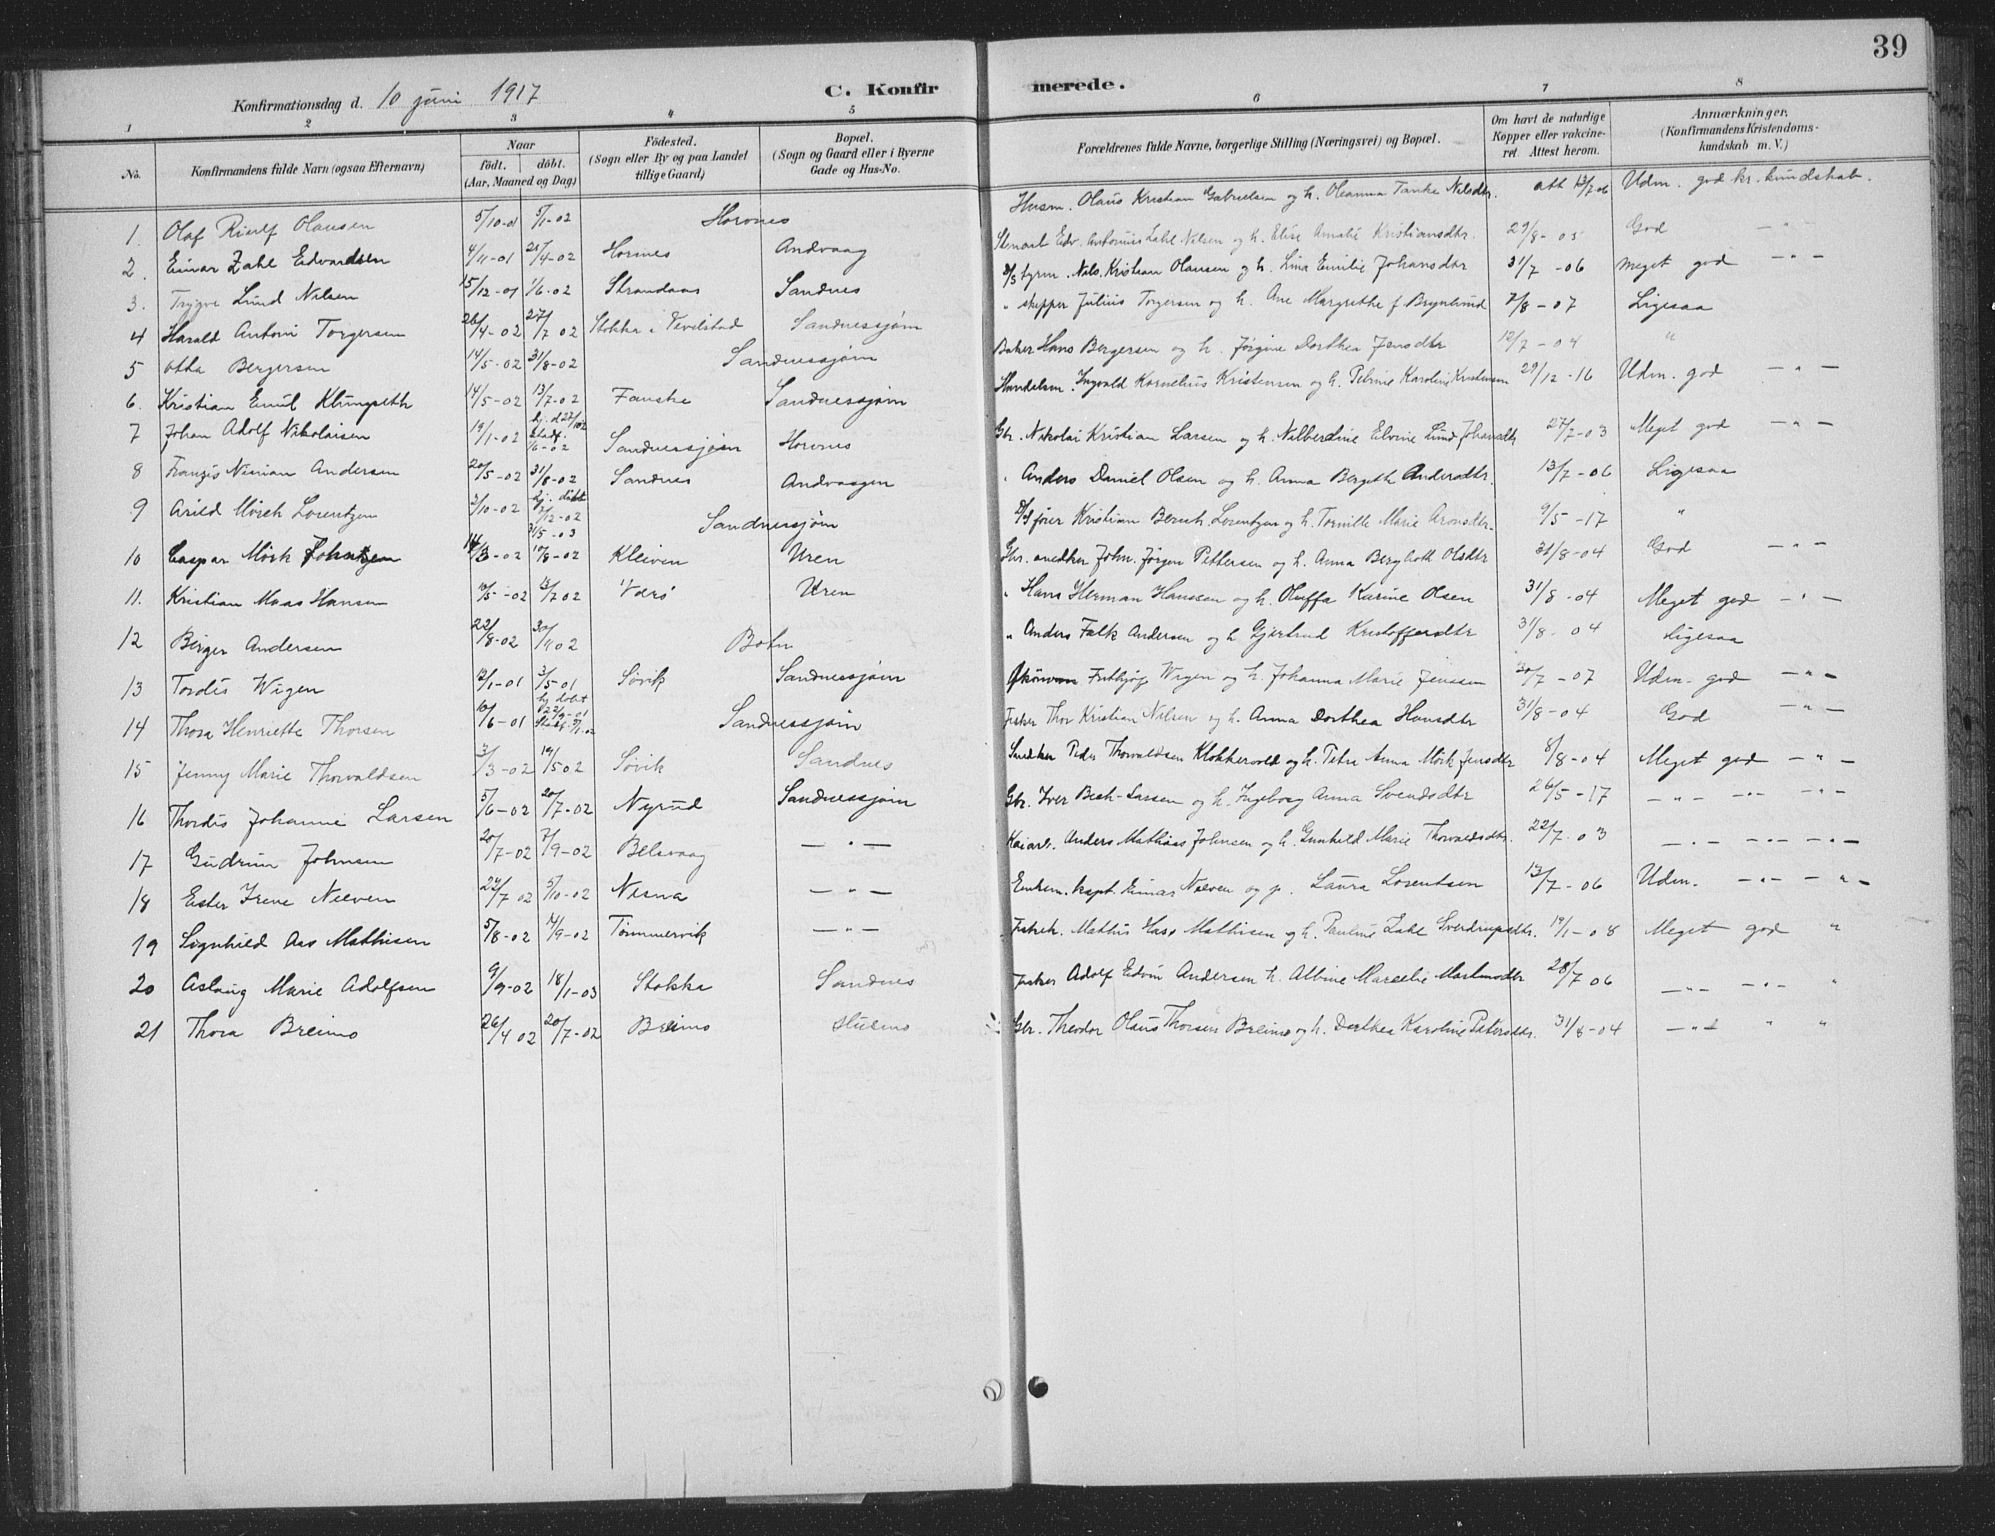 39
Konfirmationsdag d. 10 juni 1917 C. Konfir merede.
1 2 3 4 5 6 7 8
No. Konfirmandens fulde Navn (ogsaa Efternavn) Naar födt. döbt. (Aar, Maaned og Dag) Födested. (Sogn eller By og paa Landet tillige Gaard) Bopæl. (Sogn og Gaard eller i Byerne Gade og Hus-No. Forældrenes fulde Navne, borgerlige Stilling (Næringsvei) og Bopæl. Om havt de naturlige Kopper eller vakcineret. Attest herom. Anmærkninger. (Konfirmandens Kristendomskundskab m. V.)
1. Olaf Olausen 5/10-01 5/1-02 Horvnes Husm. Olaus Kristian Gabrielsen og h. Oleanna Tanke Nilsdtr. att 13/7 06 Udm. god kr. kundskab.
2. Einar Zahl Edvardsen 4/11-01 21/4-02 Andvaag Edv. Antonius Zahl Nilsen og h. Elise Amalie Kristiansdtr. 29/8-05 God — " —
3. Trygve Lund Nilsen 15/12-01 1/6-02 Strandaas Sandnes D/s styrm. Nils Kristian Olausen og h. Lina Emilie Johansdtr 31/7-06 Meget god — " —
4 Harald Antoni Torgersen 26/4-02 27/7 02 Stokka i Vevelstad Sandnessjøen " skipper Julius Torgersen og h. Ane Margrethe f. Brynlund 7/8-07 Ligesaa
5 Otto Bergersen 14/5-02 31/8-02 Sandnessjøen Baker Hans Bergersen og h. Jørgine Dorthea Jensdtr 12/7-04 "
6. Kristian Emil Klungseth 14/5-02 13/7-02 Fauske Sandnessjøen Handelsm. Ingvald Kornelius Kristensen og h. Petrine Karoline Kristensen 29/12-16 Udm. god — " —
7 Johan Adolf Nikolaisen 19/1-02 hj. d 27/1 02 Stadf. 1/6-02 Sandnessjøen Horvnes Gbr. Nikolai Kristian Larsen og h. Nilberdine Elvine Lind Johansdtr 27/7-03 Meget god — " —
8 Andersen 20/5-02 31/8-02 Sandnes Andvaagen " Anders Daniel Olsen og h. Anna Bergitte Andersdtr. 13/7-06 Ligesaa
9 Arild Mörch Lorentzen 3/10-02 hj. döbt 12-02 31/5-03 Sandnessjøen D/s fører Kristian Bernh. Lorentzen og h. Tomille Marie Aronsdtr. 9/5-17 "
10 Caspar Mörk Johntzen 14/3-02 10/8-02 Kleiven Uren Gbr. snedker John. Jørgen Pettersen og h. Anna Bergitte Olsdtr 31/8-04 God — " —
11. Kristian Maas Hansen 10/5-02 13/7 02 Værø Uren " Hans Herman Hanssen og h. Oluffa Karine Olsen 31/8-04 Meget god — " —
12 Birger Andersen 22/8-02 30/11 02 Botn " Anders Falk Andersen og h Gjertrud Kristoffersdtr 31/8-04 Ligesaa
13 Tordis Wigen 12/1-01 3/5 01 Søvik Sandnessjøen Wigen og h. Johanna Marie Jenssen 30/7-07 Udm. god — " —
14 Thora Henriette Thorsen 10/6-01 hj. döbt 22/9-01 Sandnessjøen Fisker Thor Kristian Nilsen og h. Anna Dorthea Hansdtr 31/8-04 God — " —
15 Jenny Marie Thorvaldsen 3/3-02 19/5 02 Søvik Sandnes Snedker Peder Thorvaldsen Klokkervold og h. Petra Anna Mörk Jensdtr 8/8-04 Meget god — " —
16 Thordis Johanne Larsen 5/6-02 20/7-02 Nyrud Sandnessjøen Gbr. Iver Bech-Larsen og h. Ingeborg Anna Svendsdtr 26/5-17 — " — — " — — " —
17 Gudrun Johnsen 20/7-02 7/9-02 Belsvaag — " — Kaiarb. Anders Mathias Johnsen og h. Gunhild Marie Thorvaldsdtr. 22/7-03 — " — — " — — " —
18 Ester Irene Neeven 24/7 02 5/10-02 Nesna — " — Kapt. Einar Neeven og p. Laura Lorentsen 13/7-06 Udm. — " — — " —
19 Signhild Aas Mathisen 5/8-02 14/9-02 Tømmervik — " — Fiskeh. Mathis Mathisen og h. Pauline Zahl Sverdrupsdtr. 19/1-08 Meget god "
20 Aslaug Marie Adolfsen 9/9-02 18/1-03 Stokka Sandnes Fisker Adolf Edvin Andersen h. Albine Marselie Martinsdtr 28/7 06 — " — — " — "
21 Thora Breimo 26/4 02 20/7-02 Breimo Gbr. Theodor Olaus Thorsen Breimo og h. Dorthea Karoline Petersdtr. 31/8-04 — " — " "